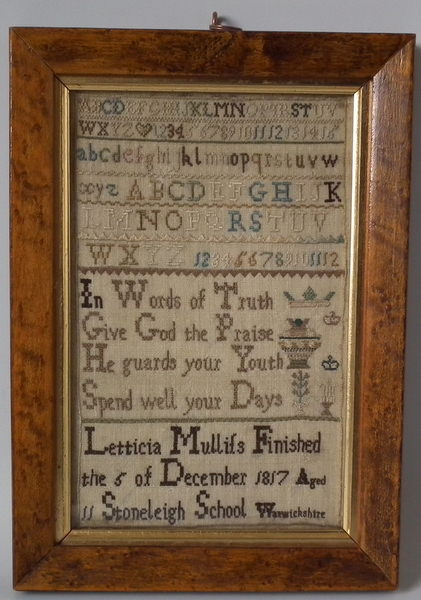 ABCDEFGHIJKLMNOPQRSTUV
WXYZ 123456789101112131415
abcdefghijklmnopqrstuvw
xyz ABCDEFGHIJK
LMNOPQRSTUV
WXYZ 123456789101112
In Words of Truth
Give God the Praise
He guards your Youth
Spend well your Days
Letticia Mullifs Finished
the 5 of December 1817 Aged
11 Stoneleigh School Warwickshire